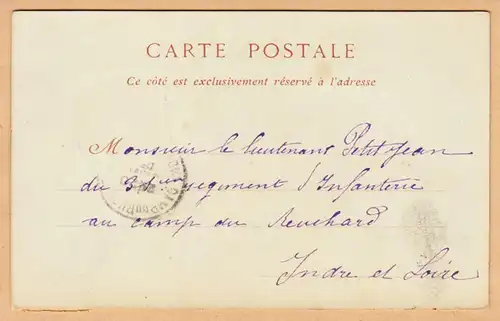 CARTE POSTALE
Ce côté est exclusivement réservé à l'adresse
Monsieur le lieutenant Petitjean
du 31e regiment d'Infanterie
au camp du Reuchard
Indre et Loire